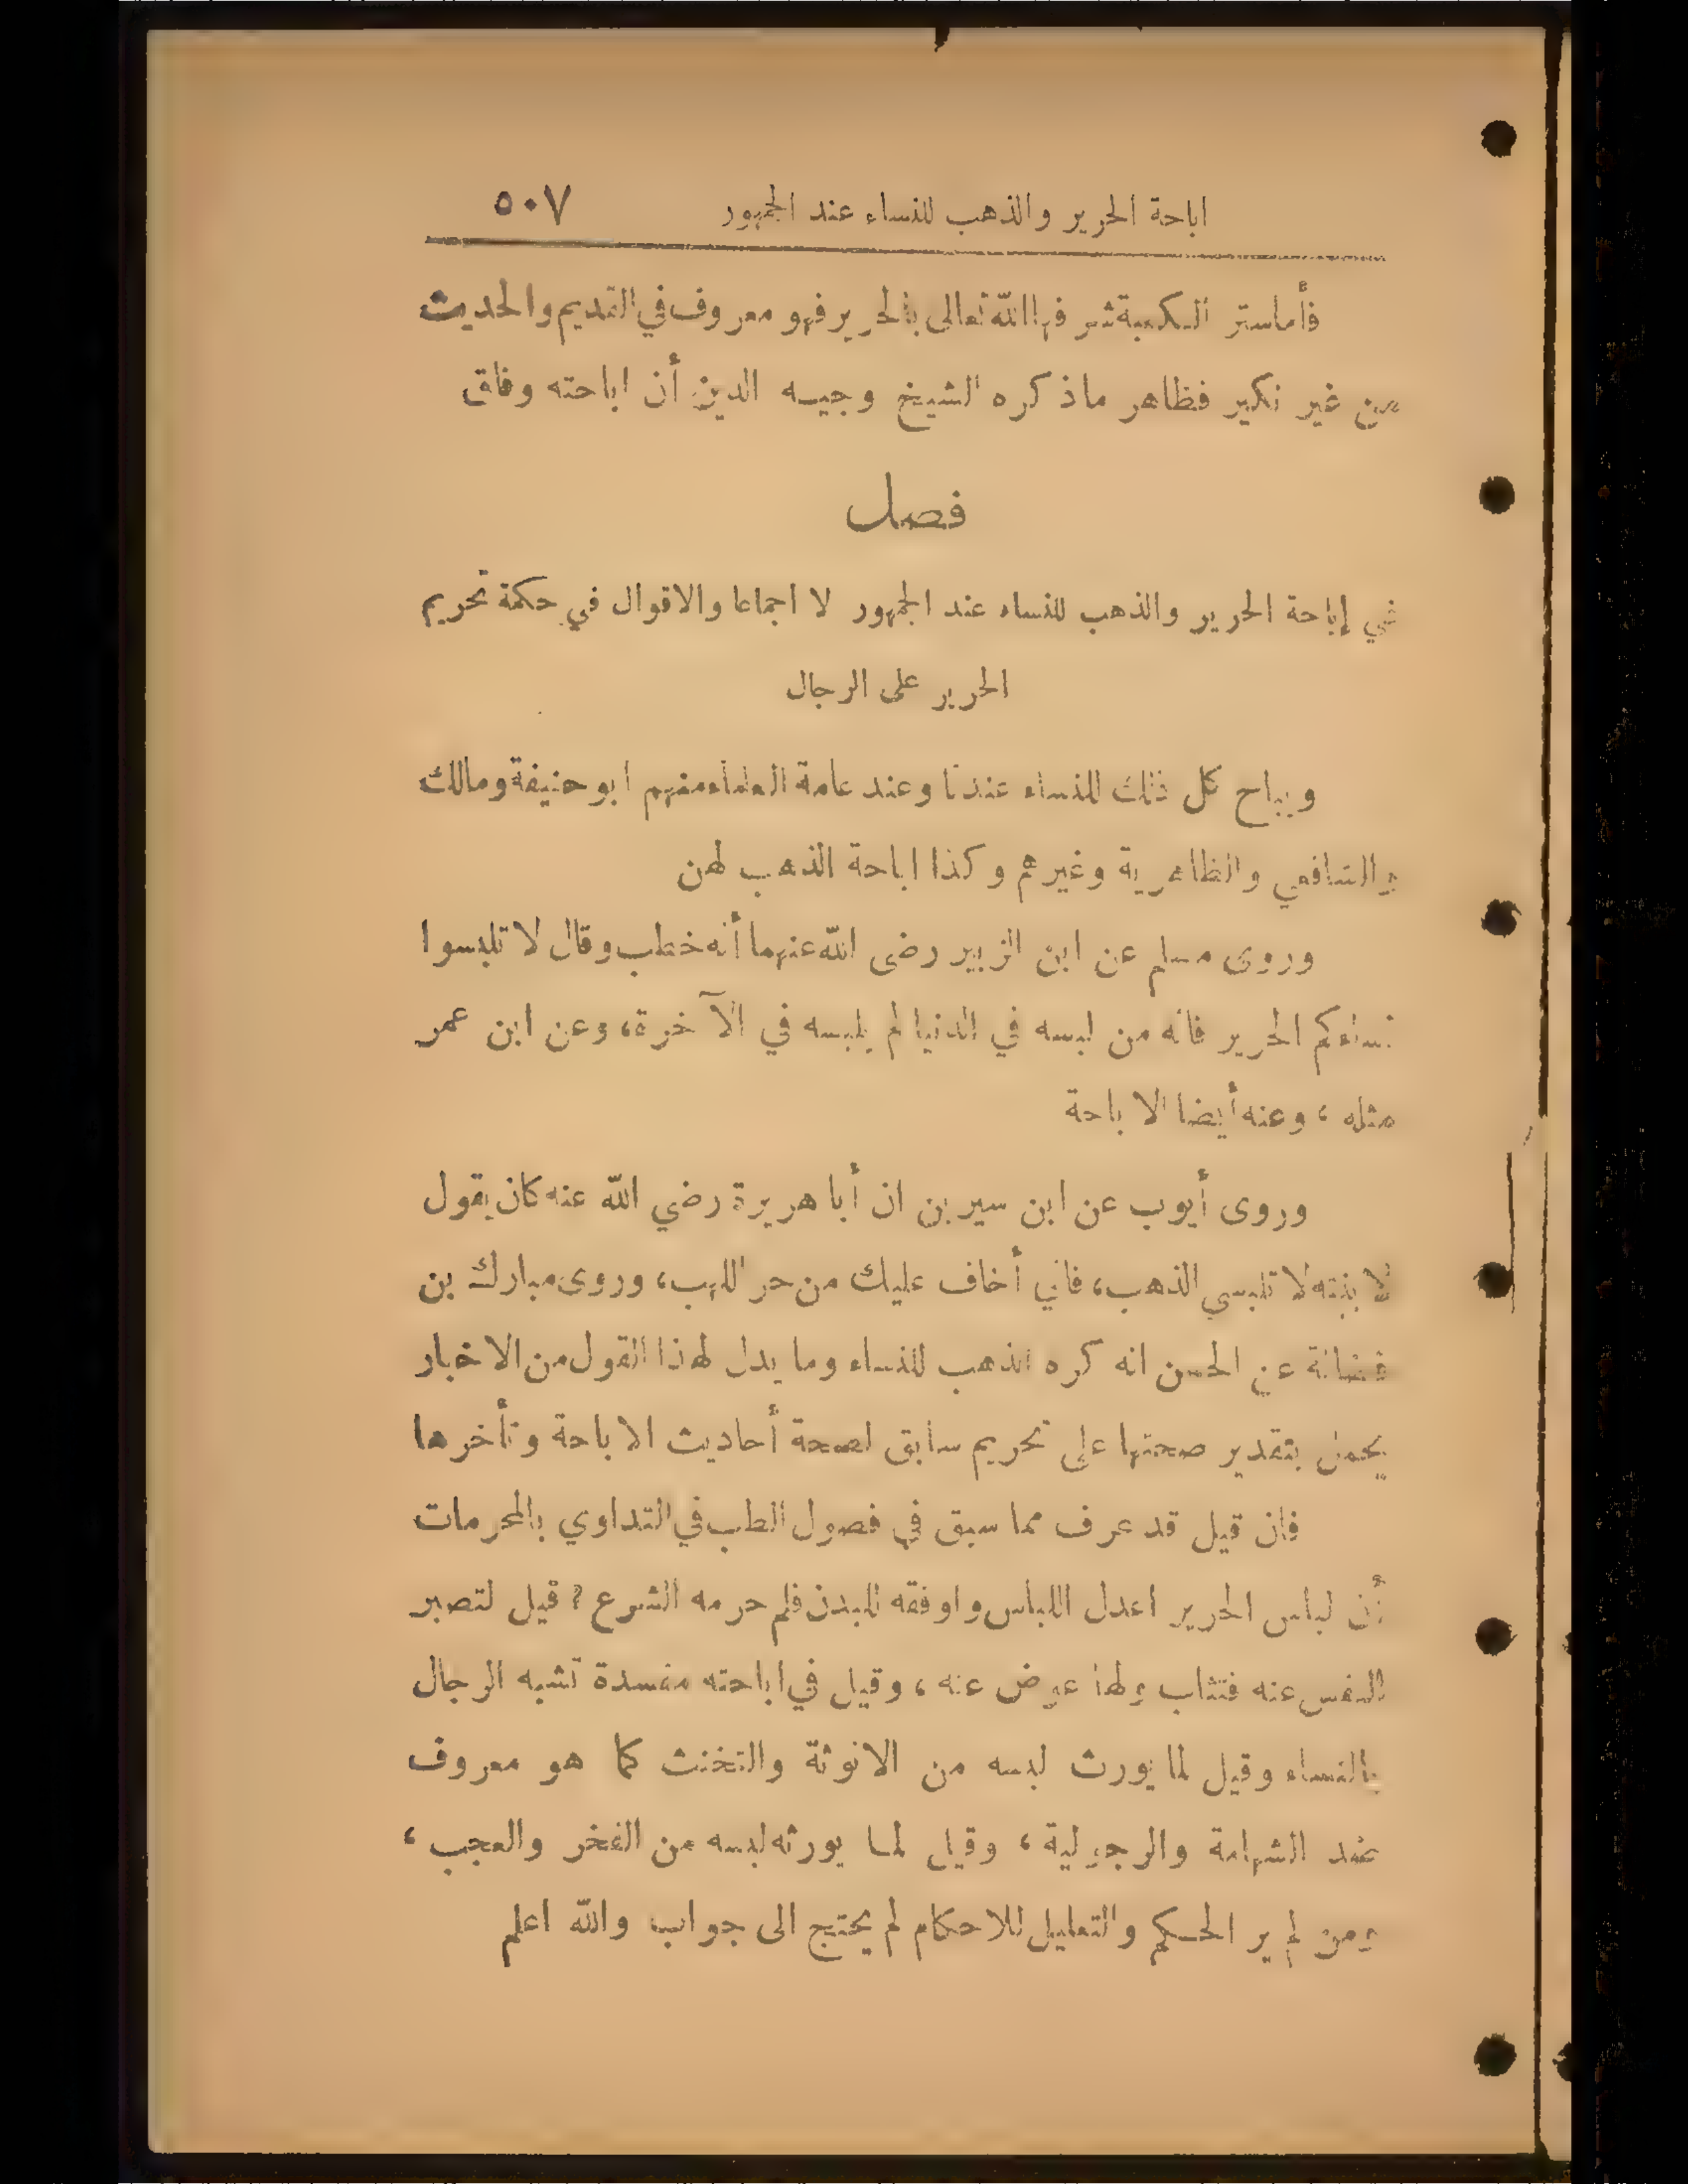 اباحة الحرير والذهب للنساء عند الجمهور ٥٠٧
فأما ستر الكعبة شرفها الله تعالى بالحرير فهو معروف في القديم والحديث
من غير نكير فظاهر ما ذكره الشيخ وجيه الدين أن اباحته وفاق
فصل
في إباحة الحرير والذهب للنساء عند الجمهور لا اجماعا والاقوال في حكمة تحريم
الحرير على الرجال
ويباح كل ذلك للنساء عندنا وعند عامة العلماء منهم ابو حنيفة ومالك
والشافعي والظاهرية وغيرهم وكذا اباحة الذهب لهن
وروى مسلم عن ابن الزبير رضى الله عنهما أنه خطب وقال لا تلبسوا
نساءكم الحرير فانه من لبسه في الدنيا لم يلبسه في الآخرة، وعن ابن عمر
مثله، وعنه أيضا الاباحة
وروى أيوب عن ابن سيرين ان أبا هريرة رضي الله عنه كان يقول
لابنته لا تلبسي الذهب، فاني أخاف عليك من حر اللهب، وروى مبارك بن
فضالة عن الحسن انه كره الذهب للنساء وما يدل لهذا القول من الاخبار
يحمل بتقدير صحتها على تحريم سابق لصحة أحاديث الاباحة وتأخرها
فان قيل قد عرف مما سبق في فصول الطب في التداوي بالمحرمات
أن لباس الحرير اعدل اللباس واوفقه للبدن فلم حرمه الشرع؟ قيل لتصبر
النفس عنه فتثاب ولها عوض عنه، وقيل في اباحته مفسدة تشبه الرجال
بالنساء وقيل لما يورث لبسه من الانوثة والتخنث كما هو معروف
ضد الشهامة والرجولية، وقيل لما يورثه لبسه من الفخر والعجب،
ومن لم ير الحكم والتعليل للاحكام لم يحتج الى جواب والله اعلم